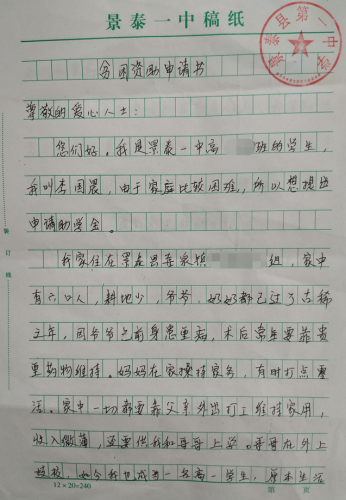 景泰一中稿纸
景泰县第一中学
贫困资助申请书
尊敬的爱心人士:
您们好。我是景泰一中高 班的学生,
我叫李国晨,由于家庭比较困难,所以想提出
申请助学金。
我家住在景泰县寺滩镇 组,家中
有六口人,耕地少,爷爷、奶奶都已过了古稀
之年,因爷爷之前身患重病,术后常年要靠贵
重药物维持。妈妈在家操持家务,有时打点零
活。家中一切都要靠父亲外出打工维持家用,
收入微薄,还要供我和哥哥上学。哥哥在外上
技校,如今我也成为一名高一学生,原本生活
装订线
12×20=240
第 页